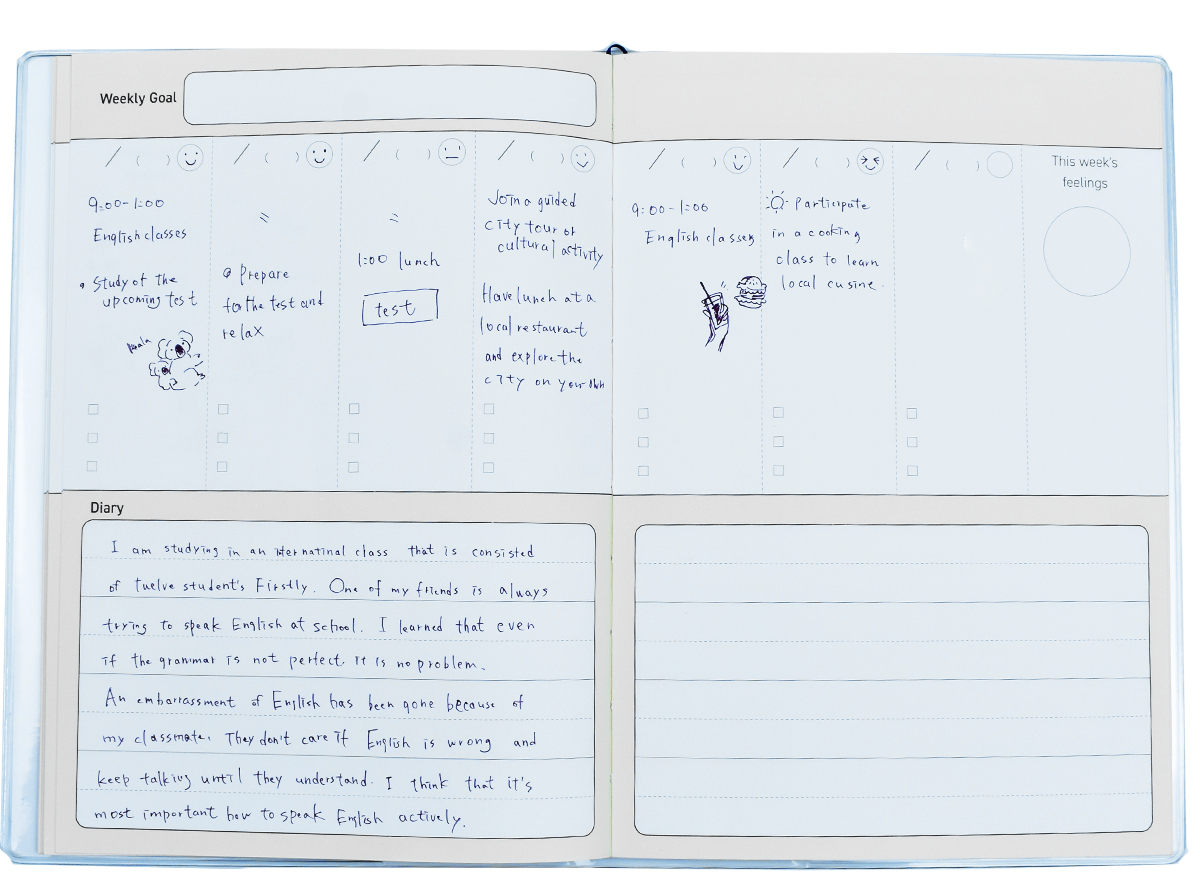 Weekly Goal
/ ( )
/ ( )
/ ( )
/ ( )
/ ( )
/ ( )
/ ( )
This week's
feelings
9:00-1:00
English classes
• Study of the
upcoming test
koala
〃
Prepare
for the test and
relax
〃
1:00 lunch
test
Join a guided
city tour or
cultural activity
Have lunch at a
local restaurant
and explore the
city on your own
9:00-1:00
English classes
Participate
in a cooking
class to learn
local cusine.
Diary
I am studying in an internatinal class that is consisted
of twelve student's Firstly. One of my friends is always
trying to speak English at school. I learned that even
if the grammar is not perfect. it is no problem.
An embarrassment of English has been gone because of
my classmate. They don't care if English is wrong and
keep talking until they understand. I think that it's
most important how to speak English actively.